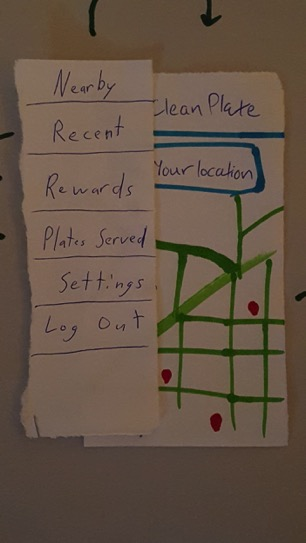 Nearby
Recent
Rewards
Plates Served
Settings
Log Out
lean Plate
Your location